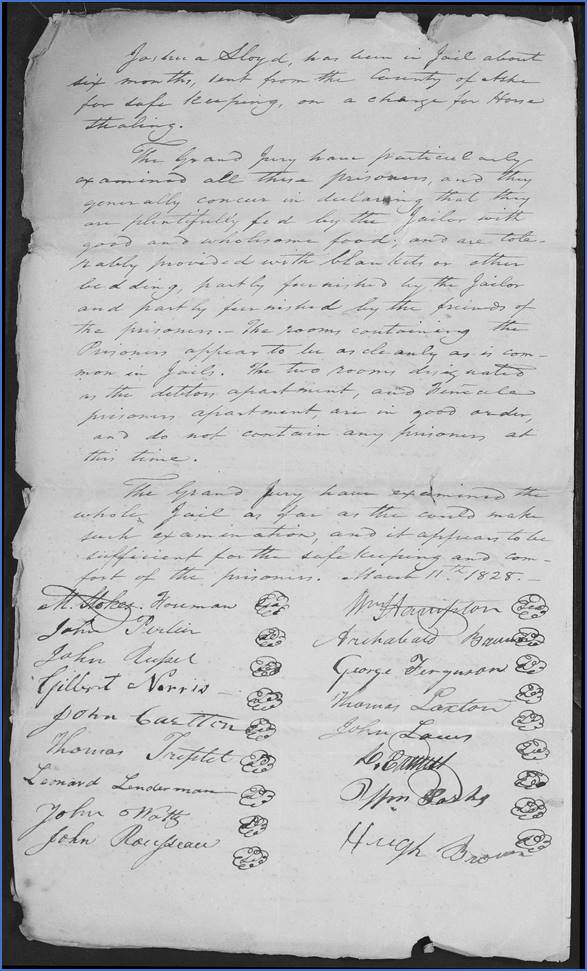 Joshua Lloyd, has been in Jail about
six months, sent from the County of Ashe
for safe keeping, on a charge for Horse
stealing.
The Grand Jury have particularly
examined all these prisoners, and they
generally concur in declaring that they
are plentifully fed by the Jailor with
good and wholesome food; and are tole-
rably provided with blankets or other
bedding, partly furnished by the Jailor
and partly furnished by the friends of
the prisoners.- The rooms containing the
Prisoners appear to be as cleanly as is com-
mon in Jails. The two rooms designated
as the debtors apartment, and Female
prisoners apartment, are in good order,
and do not contain any prisoners at
this time.
The Grand Jury have examined the
whole Jail as far as the could make
such examination, and it appears to be
sufficient for the safe keeping and com-
fort of the prisoners. March 11th 1828.-
M. Stokes. Foreman
John
John
Gilbert Norris
John Carlton
Thomas Triplet
Leonard Lenderman
John Watts
John Rousseau
Wm Hampton
Archabald
George Ferguson
Thomas Laxton
John Laws
Wm
Hugh Brown